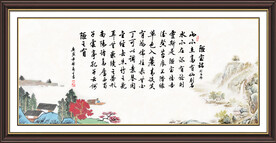 陋室銘
山不在高有仙則名
水不在深有龍則
靈斯是陋室惟吾
德馨苔痕上階綠
草色入簾青談笑
有鴻儒往來無白
丁可以調素琴閱
金經無絲竹之亂
耳無案牘之勞形
南陽諸葛廬西蜀
子雲亭孔子云何
陋之有